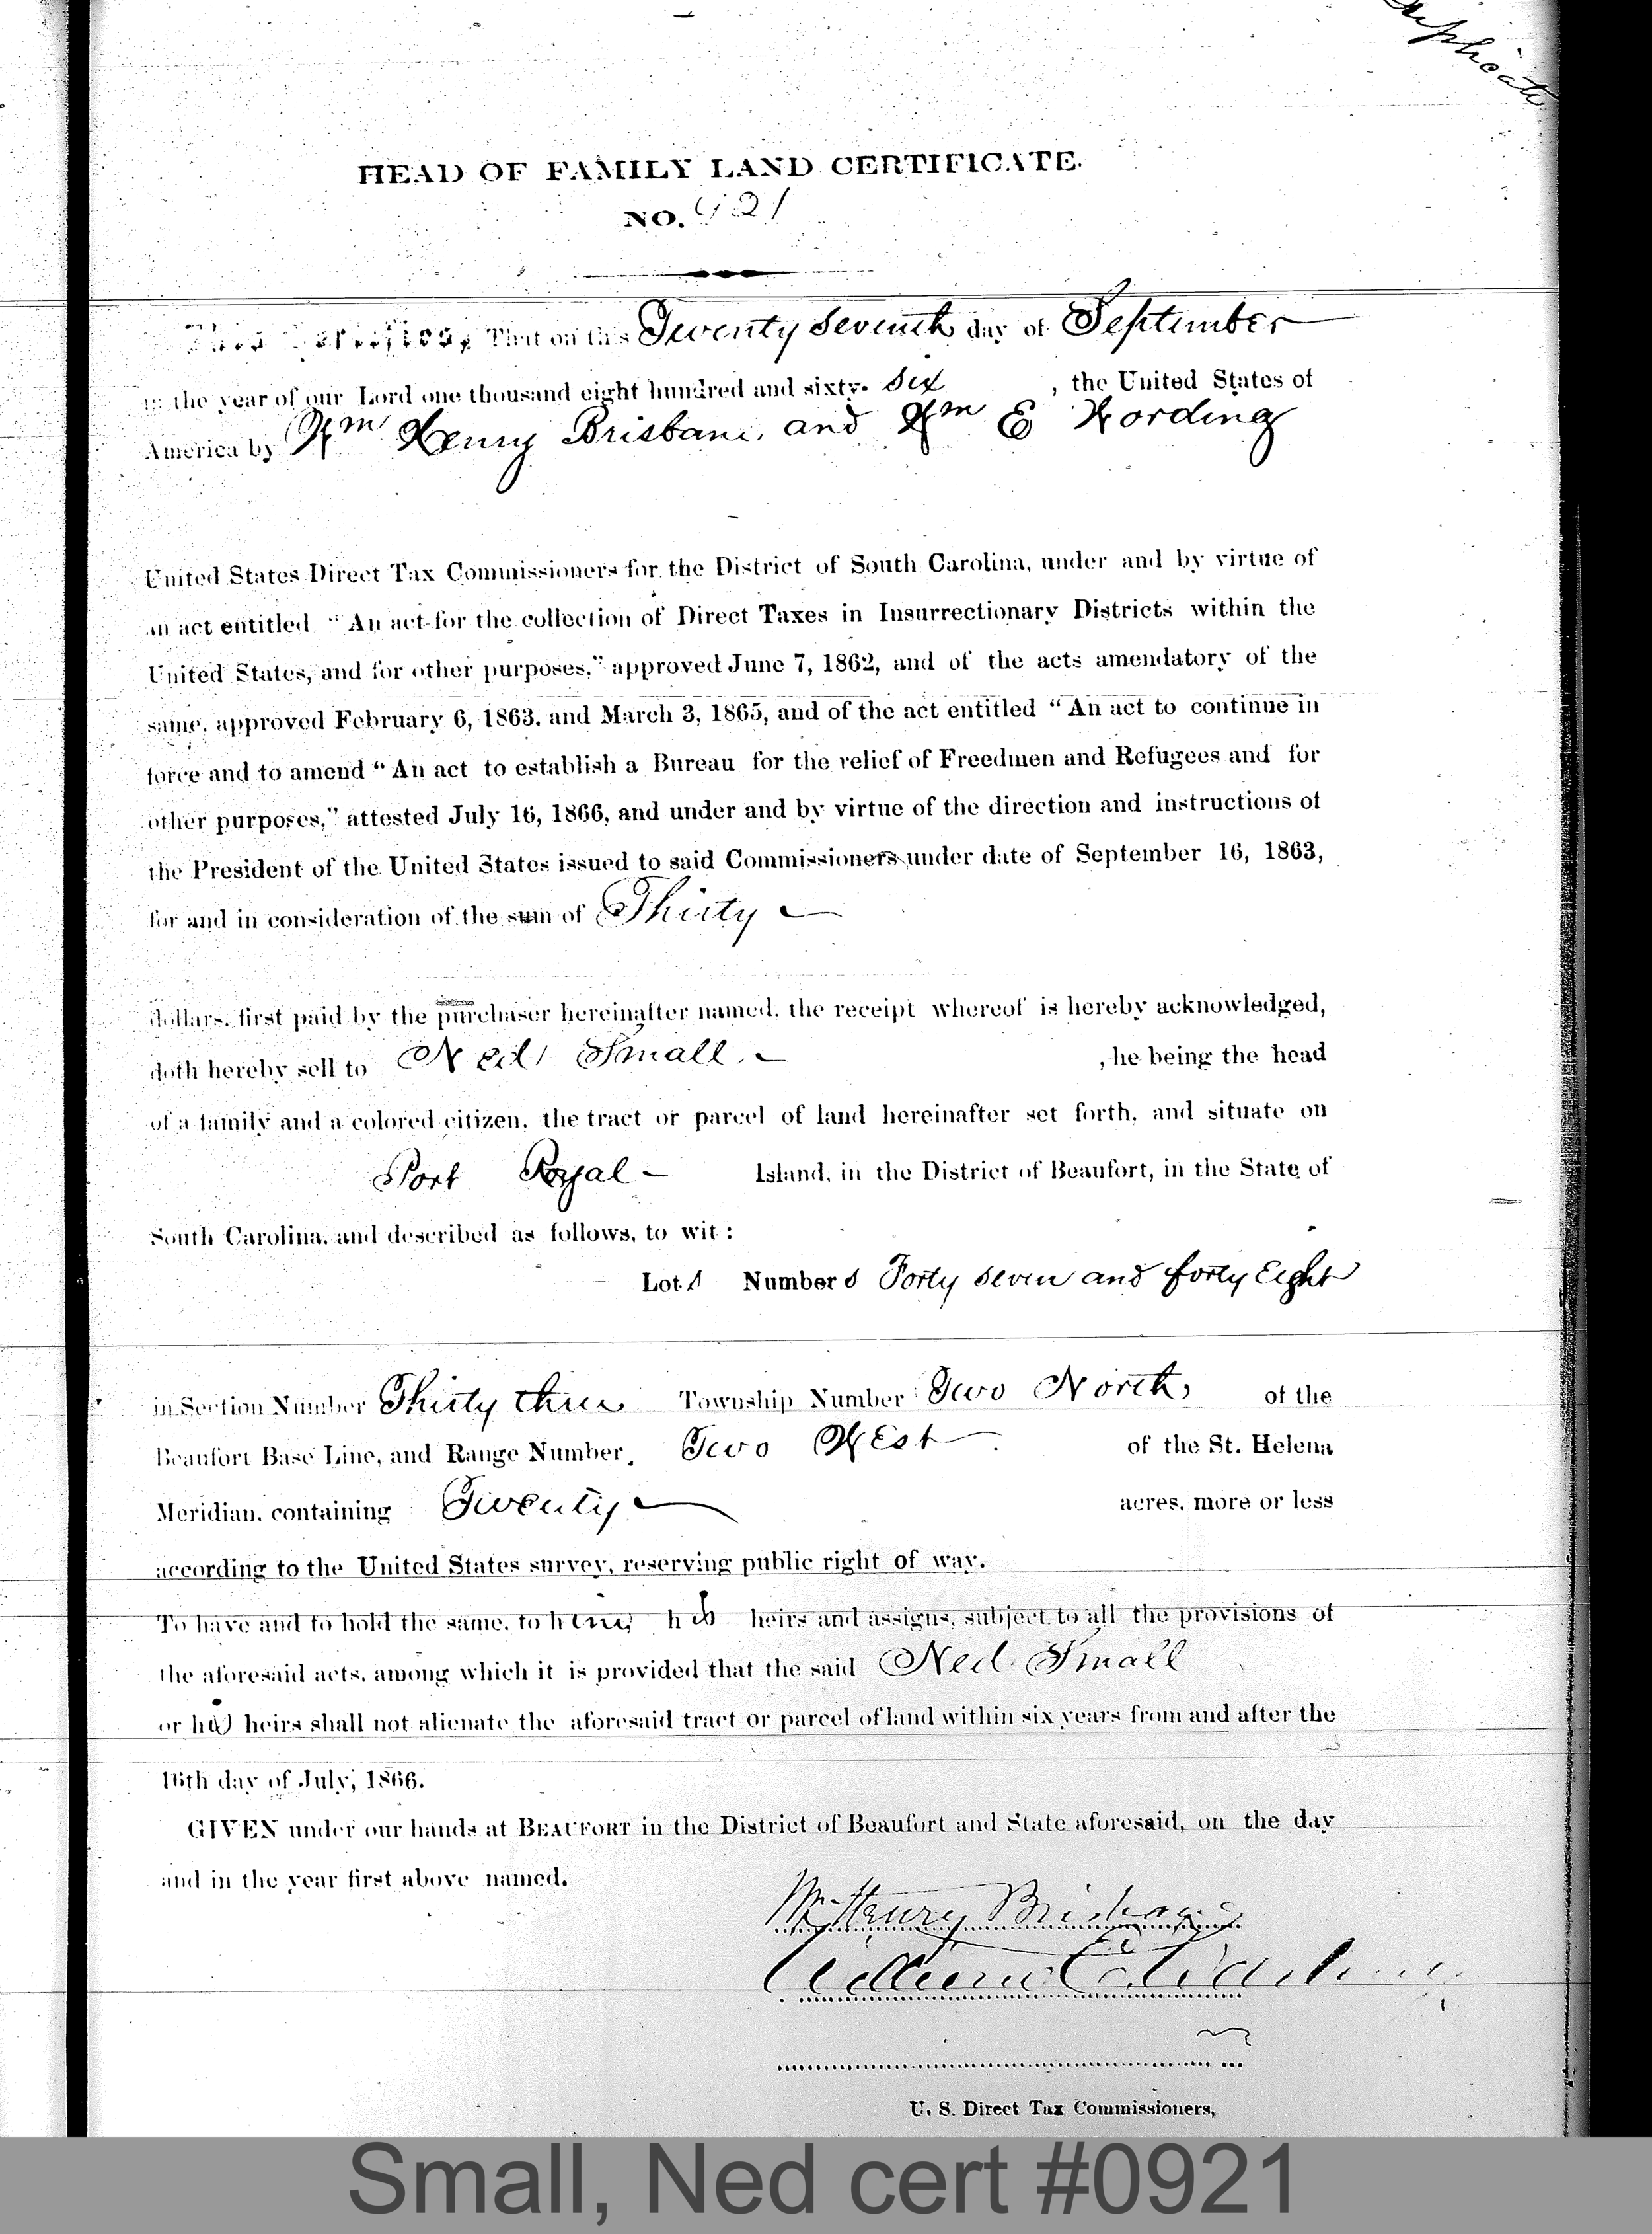 Duplicate
HEAD OF FAMILY LAND CERTIFICATE.
NO. 921
This Certifies, That on this Twenty Seventh day of September
in the year of our Lord one thousand eight hundred and sixty- Six , the United States of
America by Wm Henry Brisbane, and Wm E Wording
United States Direct Tax Commissioners for the District of South Carolina, under and by virtue of
an act entitled "An act for the collection of Direct Taxes in Insurrectionary Districts within the
United States, and for other purposes," approved June 7, 1862, and of the acts amendatory of the
same, approved February 6, 1863, and March 3, 1865, and of the act entitled "An act to continue in
force and to amend "An act to establish a Bureau for the relief of Freedmen and Refugees and for
other purposes," attested July 16, 1866, and under and by virtue of the direction and instructions of
the President of the United States issued to said Commissioners under date of September 16, 1863,
for and in consideration of the sum of Thirty —
dollars, first paid by the purchaser hereinafter named, the receipt whereof is hereby acknowledged,
doth hereby sell to Ned Small — , he being the head
of a family and a colored citizen, the tract or parcel of land hereinafter set forth, and situate on
Port Royal — Island, in the District of Beaufort, in the State of
South Carolina, and described as follows, to wit:
Lots Numbers Forty seven and forty Eight
in Section Number Thirty three Township Number Two North, of the
Beaufort Base Line, and Range Number, Two West — of the St. Helena
Meridian, containing Twenty — acres, more or less
according to the United States survey, reserving public right of way.
To have and to hold the same, to him, his heirs and assigns, subject to all the provisions of
the aforesaid acts, among which it is provided that the said Ned Small
or his heirs shall not alienate the aforesaid tract or parcel of land within six years from and after the
16th day of July, 1866.
GIVEN under our hands at BEAUFORT in the District of Beaufort and State aforesaid, on the day
and in the year first above named.
Wm Henry Brisbane
William E. Wording
U. S. Direct Tax Commissioners,
Small, Ned cert #0921